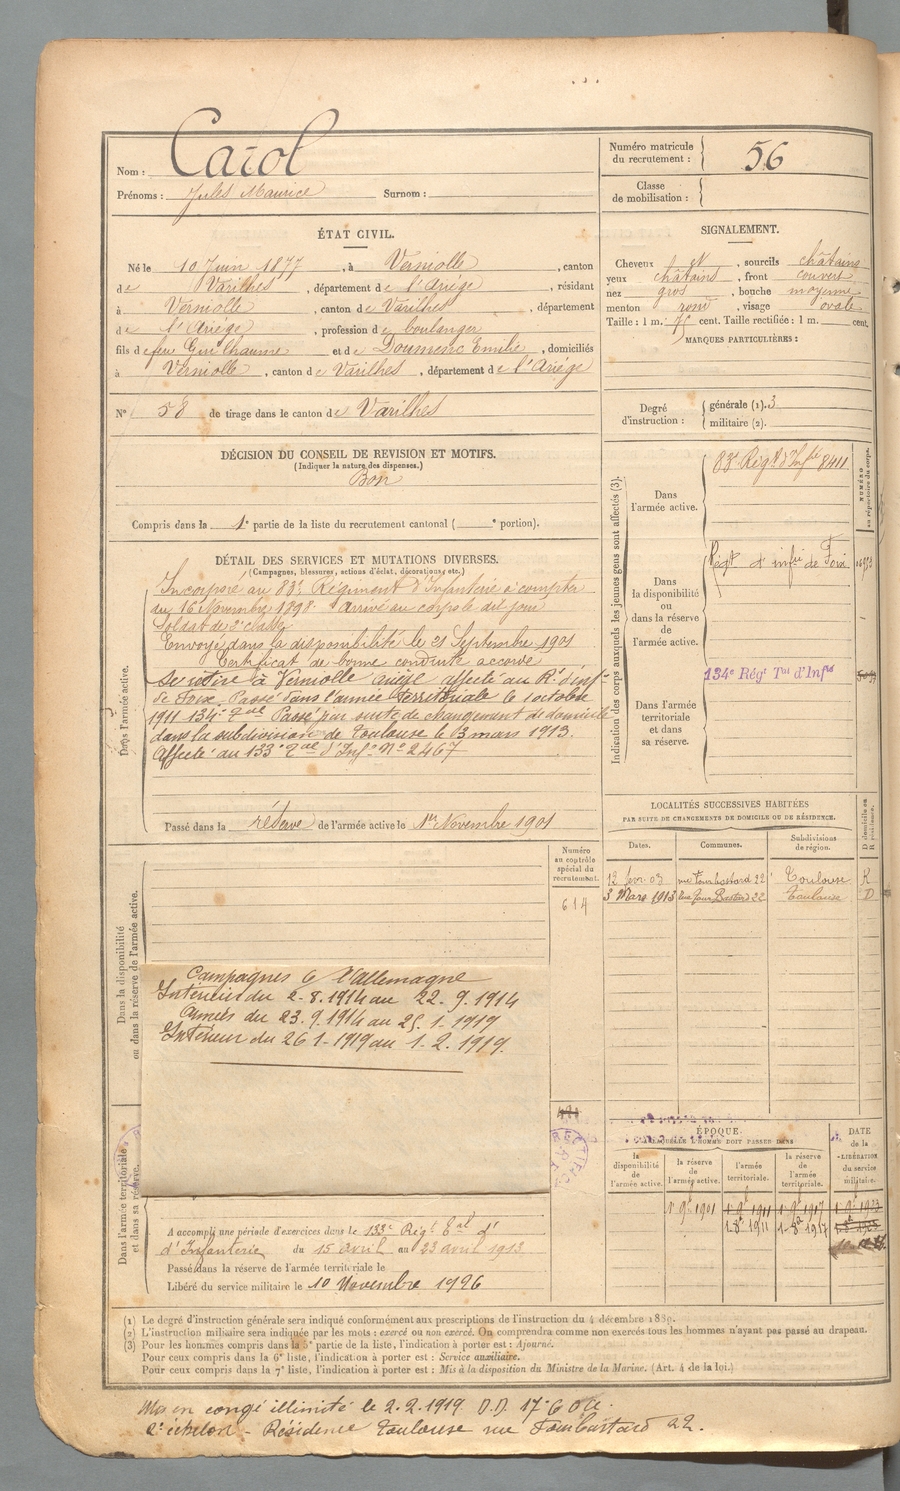 Nom : Carol
Prénoms : Jules Maurice Surnom :
Numéro matricule
du recrutement : 56
Classe
de mobilisation :
ÉTAT CIVIL.
Né le 10 Juin 1877, à Verniolle, canton
de Varilhes, département de l'Ariège, résidant
à Verniolle, canton de Varilhes, département
de l'Ariège, profession de boulanger
fils de feu Guilhaume et de Doumenc Emilie, domiciliés
à Verniolle, canton de Varilhes, département de l'Ariège
N° 58 de tirage dans le canton de Varilhes
SIGNALEMENT.
Cheveux, sourcils châtains
yeux châtains, front couvert
nez gros, bouche moyenne
menton rond, visage ovale
Taille : 1 m. cent. Taille rectifiée : 1 m. cent.
MARQUES PARTICULIÈRES :
Degré
d'instruction :
générale (1). 3
militaire (2).
DÉCISION DU CONSEIL DE REVISION ET MOTIFS.
(Indiquer la nature des dispenses.)
Bon
Compris dans la 1e partie de la liste du recrutement cantonal ( e portion).
DÉTAIL DES SERVICES ET MUTATIONS DIVERSES.
(Campagnes, blessures, actions d'éclat, décorations, etc.)
Dans l'armée active.
Incorporé au 83e Régiment d'Infanterie à compter
du 16 Novembre 1898. Arrivé au corps le dit jour
Soldat de 2e classe
Envoyé dans la disponibilité le 21 Septembre 1901
Certificat de bonne conduite accordé
Se retire à Verniolle Ariège affecté au Rt d'inf
de Foix. Passé dans l'armée territoriale le 1 octobre
1911 134e Tal Passé par suite de changement de domicile
dans la subdivision de Toulouse le 3 mars 1913.
Affecté au 133e Tal d'Infie No 2467
Passé dans la réserve de l'armée active le 1er Novembre 1901
Indication des corps auxquels les jeunes gens sont affectés (3).
NUMÉRO
au répertoire du corps.
Dans
l'armée active.
83e Régt d'Infie 8411
Dans
la disponibilité
ou
dans la réserve
de
l'armée active.
Régt d'infie de Foix
134e Régt Tal d'Infie
Dans l'armée
territoriale
et dans
sa réserve.
LOCALITÉS SUCCESSIVES HABITÉES
PAR SUITE DE CHANGEMENTS DE DOMICILE OU DE RÉSIDENCE.
D domicile ou
R résidence.
Dates. Communes. Subdivisions
de région.
12 fevr. 03 rue 22 Toulouse R
3 Mars 1913 Rue 22 Toulouse D
Dans la disponibilité
ou dans la réserve de l'armée active.
Numéro
au contrôle
spécial du
recrutement.
614
Campagnes c/ l'Allemagne
Intérieur du 2-8.1914 au 22.9.1914
Armées du 23.9.1914 au 25.1-1919
Intérieur du 26 1-1919 au 1.2.1919.
Dans l'armée territoriale
et dans sa réserve.
ÉPOQUE
À LAQUELLE L'HOMME DOIT PASSER DANS
la
disponibilité
de
l'armée active.
la réserve
de
l'armée active.
l'armée
territoriale.
la réserve
de
l'armée
territoriale.
DATE
de la
LIBÉRATION
du service
militaire.
A accompli une période d'exercices dans le 133e Régt Tal d'
d'Infanterie du 15 avril au 23 avril 1913
Passé dans la réserve de l'armée territoriale le
Libéré du service militaire le 10 Novembre 1926
(1) Le degré d'instruction générale sera indiqué conformément aux prescriptions de l'instruction du 4 décembre 1889.
(2) L'instruction militaire sera indiquée par les mots : exercé ou non exercé. On comprendra comme non exercés tous les hommes n'ayant pas passé au drapeau.
(3) Pour les hommes compris dans la 5e partie de la liste, l'indication à porter est : Ajourné.
Pour ceux compris dans la 6e liste, l'indication à porter est : Service auxiliaire.
Pour ceux compris dans la 7e liste, l'indication à porter est : Mis à la disposition du Ministre de la Marine. (Art. 4 de la loi.)
Mis en congé illimité le 2.2.1919 D.D. 17e
2e échelon - Résidence Toulouse rue 22.